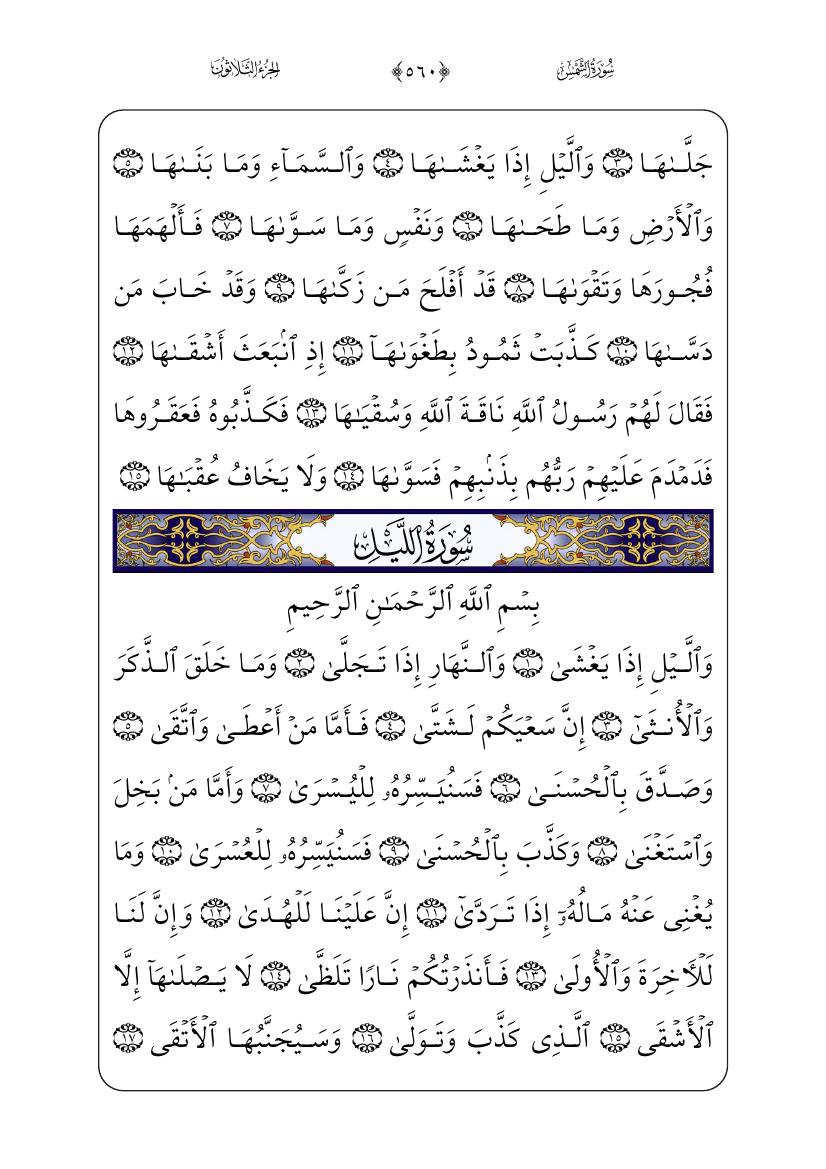 سُورَةُ الشَّمْسِ ﴿٥٦٠﴾ الجُزْءُ الثَّلَاثُونَ
جَلَّىٰهَا ٣ وَٱلَّيۡلِ إِذَا يَغۡشَىٰهَا ٤ وَٱلسَّمَآءِ وَمَا بَنَىٰهَا ٥
وَٱلۡأَرۡضِ وَمَا طَحَىٰهَا ٦ وَنَفۡسٖ وَمَا سَوَّىٰهَا ٧ فَأَلۡهَمَهَا
فُجُورَهَا وَتَقۡوَىٰهَا ٨ قَدۡ أَفۡلَحَ مَن زَكَّىٰهَا ٩ وَقَدۡ خَابَ مَن
دَسَّىٰهَا ١٠ كَذَّبَتۡ ثَمُودُ بِطَغۡوَىٰهَآ ١١ إِذِ ٱنۢبَعَثَ أَشۡقَىٰهَا ١٢
فَقَالَ لَهُمۡ رَسُولُ ٱللَّهِ نَاقَةَ ٱللَّهِ وَسُقۡيَٰهَا ١٣ فَكَذَّبُوهُ فَعَقَرُوهَا
فَدَمۡدَمَ عَلَيۡهِمۡ رَبُّهُم بِذَنۢبِهِمۡ فَسَوَّىٰهَا ١٤ وَلَا يَخَافُ عُقۡبَٰهَا ١٥
سُورَةُ اللَّيْلِ
بِسۡمِ ٱللَّهِ ٱلرَّحۡمَٰنِ ٱلرَّحِيمِ
وَٱلَّيۡلِ إِذَا يَغۡشَىٰ ١ وَٱلنَّهَارِ إِذَا تَجَلَّىٰ ٢ وَمَا خَلَقَ ٱلذَّكَرَ
وَٱلۡأُنثَىٰٓ ٣ إِنَّ سَعۡيَكُمۡ لَشَتَّىٰ ٤ فَأَمَّا مَنۡ أَعۡطَىٰ وَٱتَّقَىٰ ٥
وَصَدَّقَ بِٱلۡحُسۡنَىٰ ٦ فَسَنُيَسِّرُهُۥ لِلۡيُسۡرَىٰ ٧ وَأَمَّا مَنۢ بَخِلَ
وَٱسۡتَغۡنَىٰ ٨ وَكَذَّبَ بِٱلۡحُسۡنَىٰ ٩ فَسَنُيَسِّرُهُۥ لِلۡعُسۡرَىٰ ١٠ وَمَا
يُغۡنِي عَنۡهُ مَالُهُۥٓ إِذَا تَرَدَّىٰٓ ١١ إِنَّ عَلَيۡنَا لَلۡهُدَىٰ ١٢ وَإِنَّ لَنَا
لَلۡأٓخِرَةَ وَٱلۡأُولَىٰ ١٣ فَأَنذَرۡتُكُمۡ نَارٗا تَلَظَّىٰ ١٤ لَا يَصۡلَىٰهَآ إِلَّا
ٱلۡأَشۡقَى ١٥ ٱلَّذِي كَذَّبَ وَتَوَلَّىٰ ١٦ وَسَيُجَنَّبُهَا ٱلۡأَتۡقَى ١٧